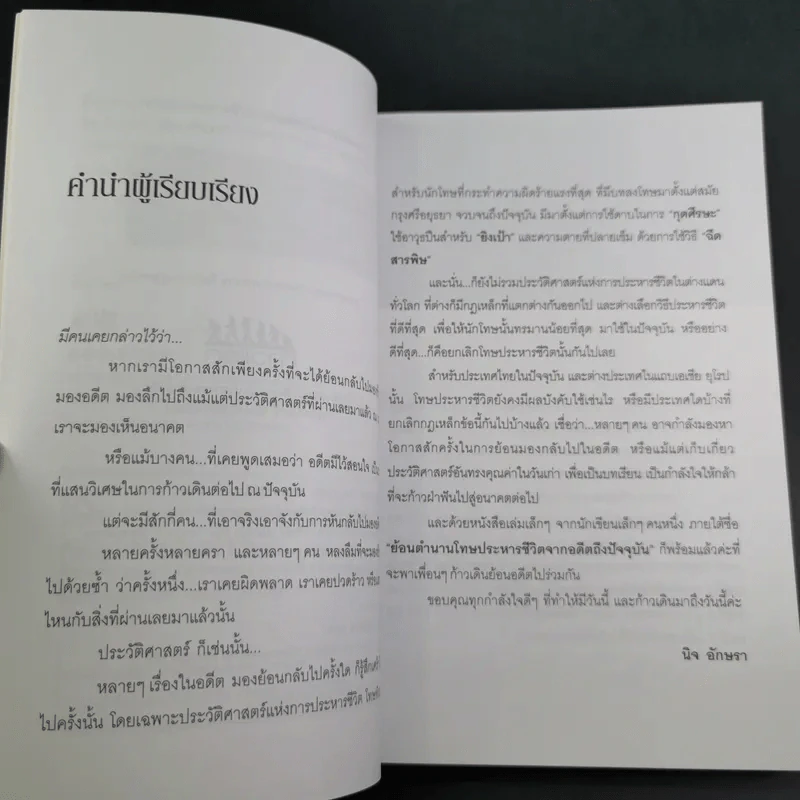 คำนำผู้เรียบเรียง
มีคนเคยกล่าวไว้ว่า...
หากเรามีโอกาสสักเพียงครั้งที่จะได้ย้อนกลับไป
มองอดีต มองลึกไปถึงแม้แต่ประวัติศาสตร์ที่ผ่านเลยมาแล้ว ณ
เราจะมองเห็นอนาคต
หรือแม้บางคน...ที่เคยพูดเสมอว่า อดีตมีไว้สอนใจ
ที่แสนวิเศษในการก้าวเดินต่อไป ณ ปัจจุบัน
แต่จะมีสักกี่คน...ที่เอาจริงเอาจังกับการหันกลับไป
หลายครั้งหลายครา และหลายๆ คน หลงลืมที่จะ
ไปด้วยซ้ำ ว่าครั้งหนึ่ง...เราเคยผิดพลาด เราเคยปวดร้าว
ไหนกับสิ่งที่ผ่านเลยมาแล้วนั้น
ประวัติศาสตร์ ก็เช่นนั้น...
หลายๆ เรื่องในอดีต มองย้อนกลับไปครั้งใด ก็รู้สึก
ไปครั้งนั้น โดยเฉพาะประวัติศาสตร์แห่งการประหารชีวิต
สำหรับนักโทษที่กระทำความผิดร้ายแรงที่สุด ที่มีบทลงโทษมาตั้งแต่สมัย
กรุงศรีอยุธยา จวบจนถึงปัจจุบัน มีมาตั้งแต่การใช้ดาบในการ "กุดศีรษะ"
ใช้อาวุธปืนสำหรับ "ยิงเป้า" และความตายที่ปลายเข็ม ด้วยการใช้วิธี "ฉีด
สารพิษ"
และนั่น...ก็ยังไม่รวมประวัติศาสตร์แห่งการประหารชีวิตในต่างแดน
ทั่วโลก ที่ต่างก็มีกฎเหล็กที่แตกต่างกันออกไป และต่างเลือกวิธีประหารชีวิต
ที่ดีที่สุด เพื่อให้นักโทษนั้นทรมานน้อยที่สุด มาใช้ในปัจจุบัน หรืออย่าง
ดีที่สุด...ก็คือยกเลิกโทษประหารชีวิตนั้นกันไปเลย
สำหรับประเทศไทยในปัจจุบัน และต่างประเทศในแถบเอเชีย ยุโรป
นั้น โทษประหารชีวิตยังคงมีผลบังคับใช้เช่นไร หรือมีประเทศใดบ้างที่
ยกเลิกกฎเหล็กข้อนี้กันไปบ้างแล้ว เชื่อว่า...หลายๆ คน อาจกำลังมองหา
โอกาสสักครั้งในการย้อนมองกลับไปในอดีต หรือแม้แต่เก็บเกี่ยว
ประวัติศาสตร์อันทรงคุณค่าในวันเก่า เพื่อเป็นบทเรียน เป็นกำลังใจให้กล้า
ที่จะก้าวฝ่าฟันไปสู่อนาคตต่อไป
และด้วยหนังสือเล่มเล็กๆ จากนักเขียนเล็กๆ คนหนึ่ง ภายใต้ชื่อ
"ย้อนตำนานโทษประหารชีวิตจากอดีตถึงปัจจุบัน" ก็พร้อมแล้วค่ะที่
จะพาเพื่อนๆ ก้าวเดินย้อนอดีตไปร่วมกัน
ขอบคุณทุกกำลังใจดีๆ ที่ทำให้มีวันนี้ และก้าวเดินมาถึงวันนี้ค่ะ
นิจ อักษรา